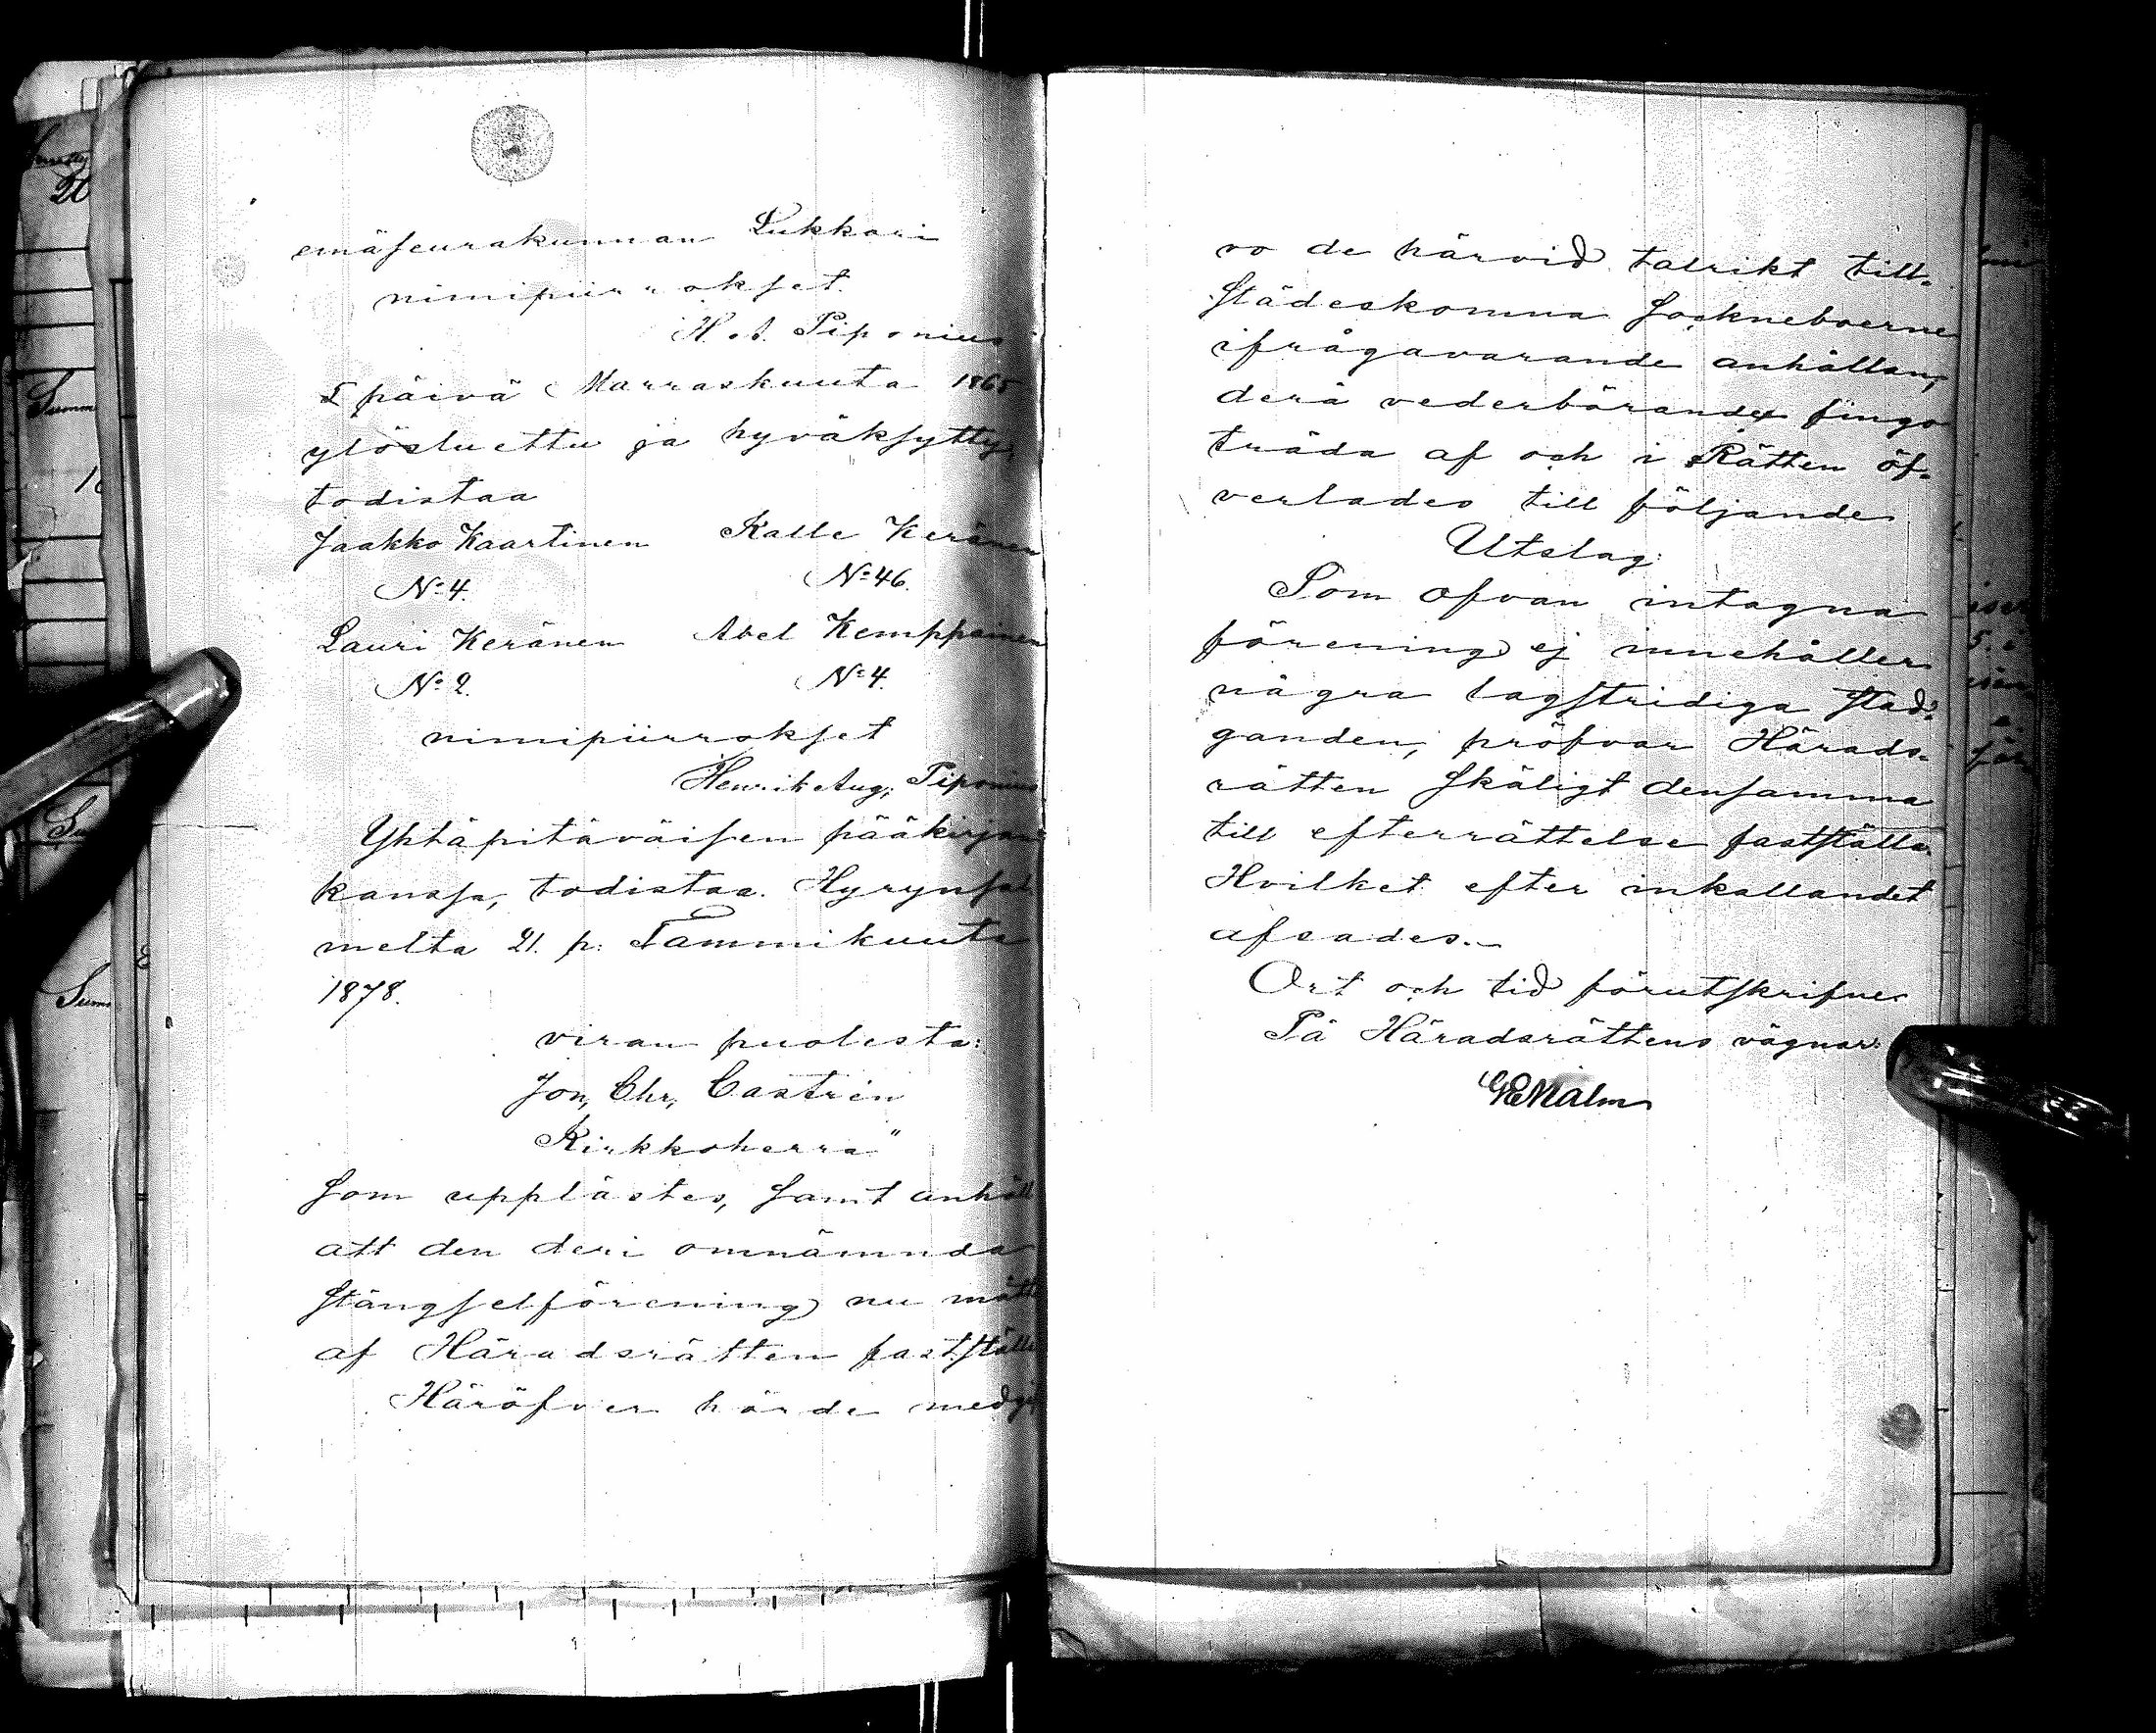 emäseurakunnan Lukkari
nimipiirrokset.
H. A. Piponius
5 päivä Marraskuuta 1865
ylösluettu ja hyväksytty,
todistaa
Jaakko Kaartinen Kalle Keränen
No 4. No 46.
Lauri Keränen Abel Kemppainen
No 2. No 4.
nimipiirrokset
Henrik Aug; Piponius
Yhtäpitäväisen pääkirjan
kanssa, todistaa. Hyrynsal
melta 21. p: Tammikuuta
1878.
viran puolesta:
Jon, Chr, Castrén
Kirkkoherra"
som upplästes, samt anhöll
att den deri omnämnda
stängselförening nu mått
af Häradsrätten fastställ
Häröfver hörde medgåf
vo de härvid talrikt till-
städeskomna Sockneboerne
ifrågavarande anhållan;
derå vederbörande fingo
träda af och i Rätten öf-
verlades till följande
Utslag:
Som ofvan intagna
förening ej innehåller
några lagstridiga stad-
ganden, pröfvar Härads-
rätten skäligt densamma
till efterrättelse fastställa.
Hvilket efter inkallandet
afsades.
Ort och tid förutskrifne
På Häradsrättens vägnar:
GEMalm